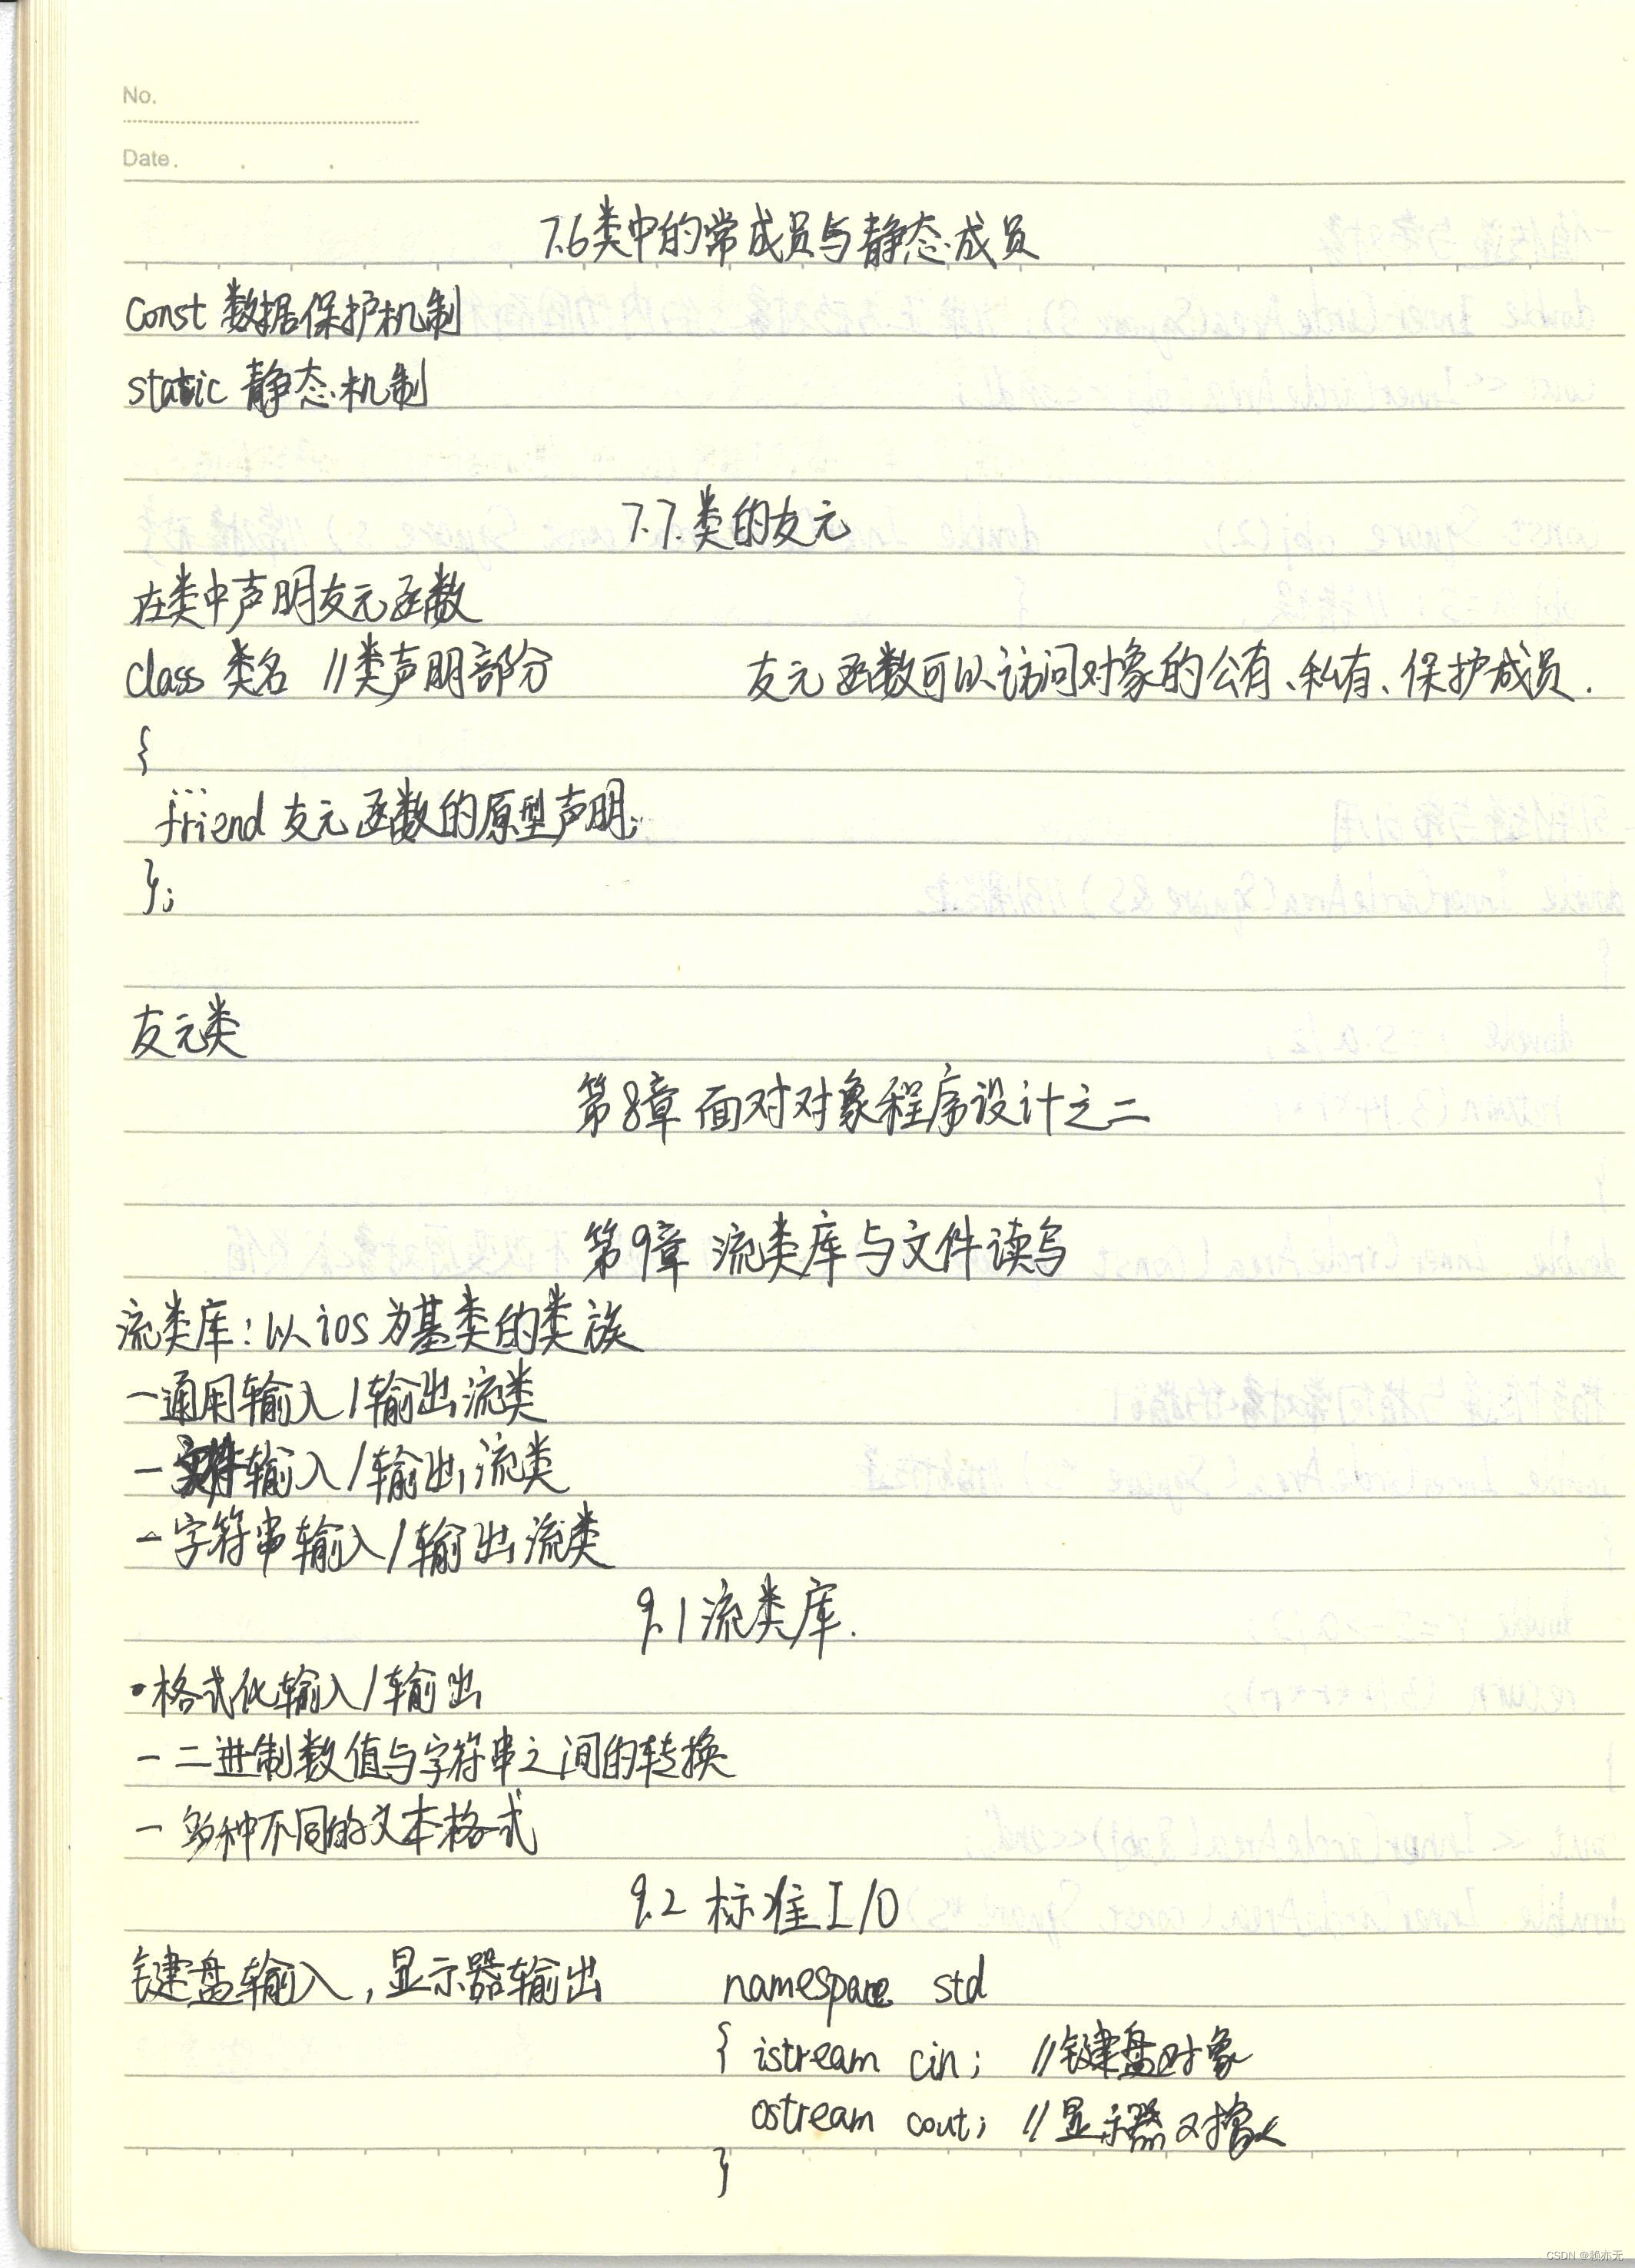 No.
Date.
7.6类中的常成员与静态成员
const 数据保护机制
static 静态机制
7.7.类的友元
在类中声明友元函数
class 类名 //类声明部分 友元函数可以访问对象的公有、私有、保护成员.
{
...
friend 友元函数的原型声明;
};
友元类
第8章 面对对象程序设计之二
第9章 流类库与文件读写
流类库:以ios为基类的类族
-通用输入/输出流类
-文件输入/输出流类
-字符串输入/输出流类
9.1流类库.
·格式化输入/输出
-二进制数值与字符串之间的转换
-多种不同的文本格式
9.2 标准I/O
键盘输入,显示器输出 namespace std
{ istream cin; //键盘对象
ostream cout; //显示器对象
}
CSDN @赖亦无